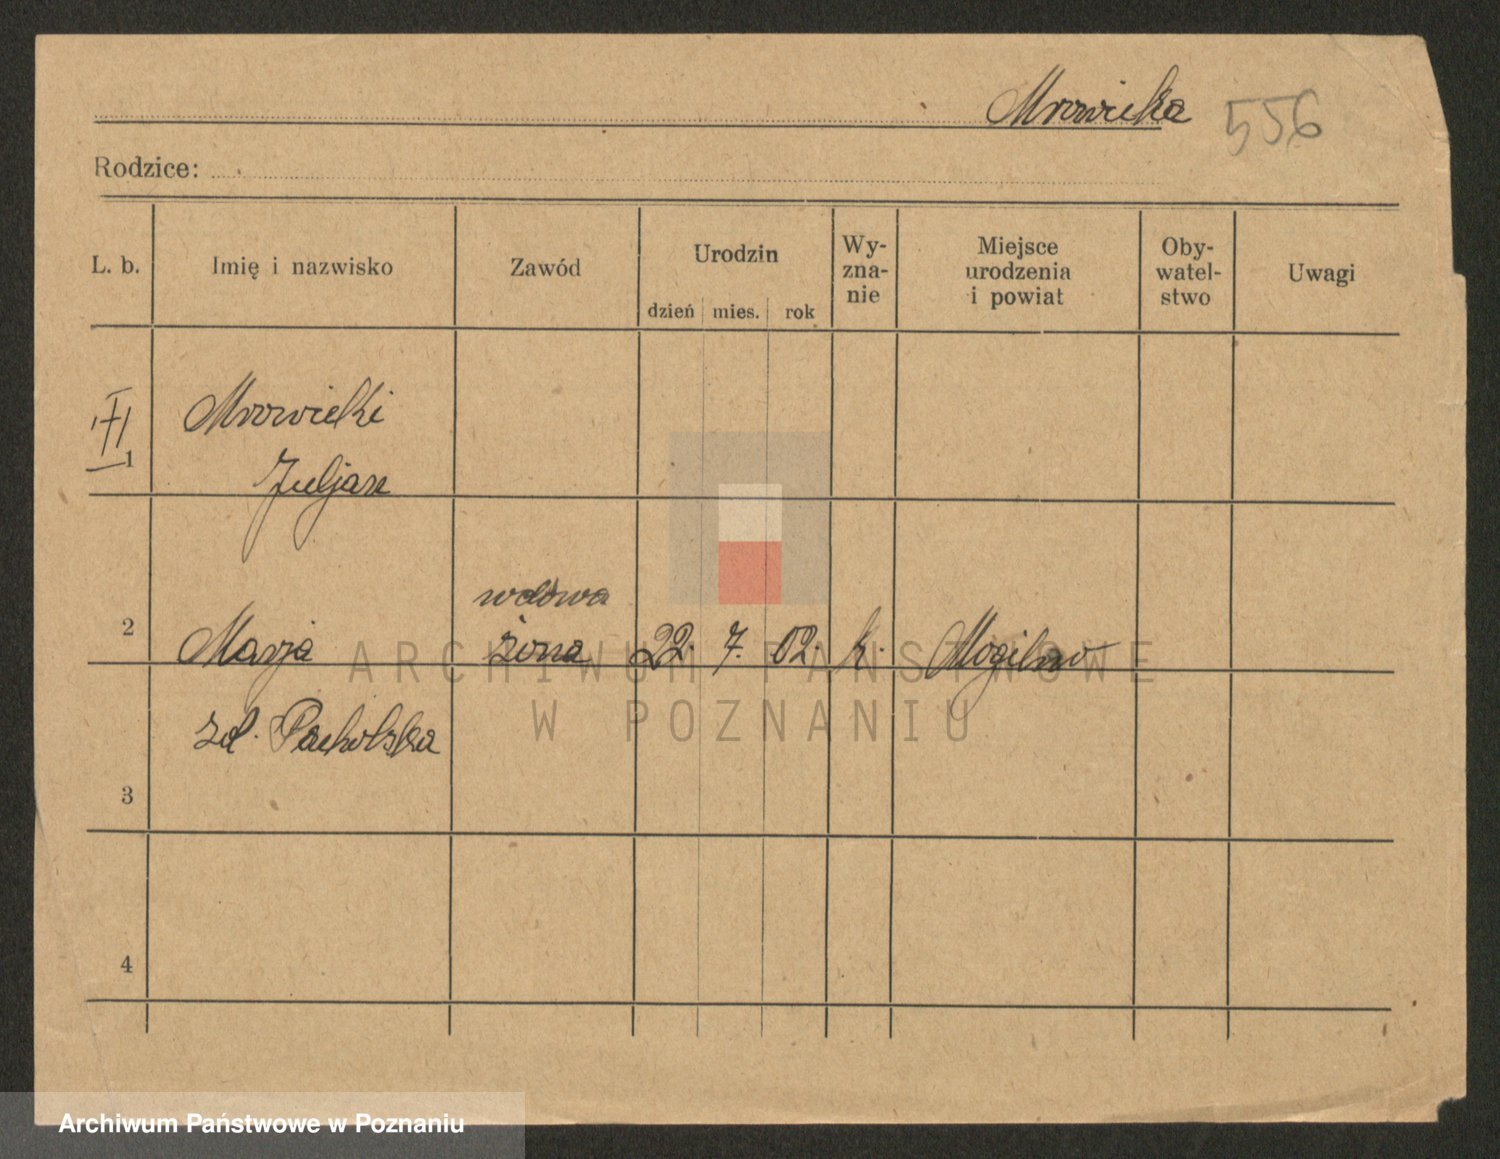 Mrowicka 556
Rodzice:
L. b. Imię i nazwisko Zawód Urodzin dzień mies. rok Wy-zna-nie Miejsce urodzenia i powiat Oby-watel-stwo Uwagi
1 Mrowicki
Juljan
wdowa
2 Marja żona 22. 7. 02. k. Mogilno
ARCHIWUM PAŃSTWOWE
W POZNANIU
zd. Pacholska
3
4
Archiwum Państwowe w Poznaniu